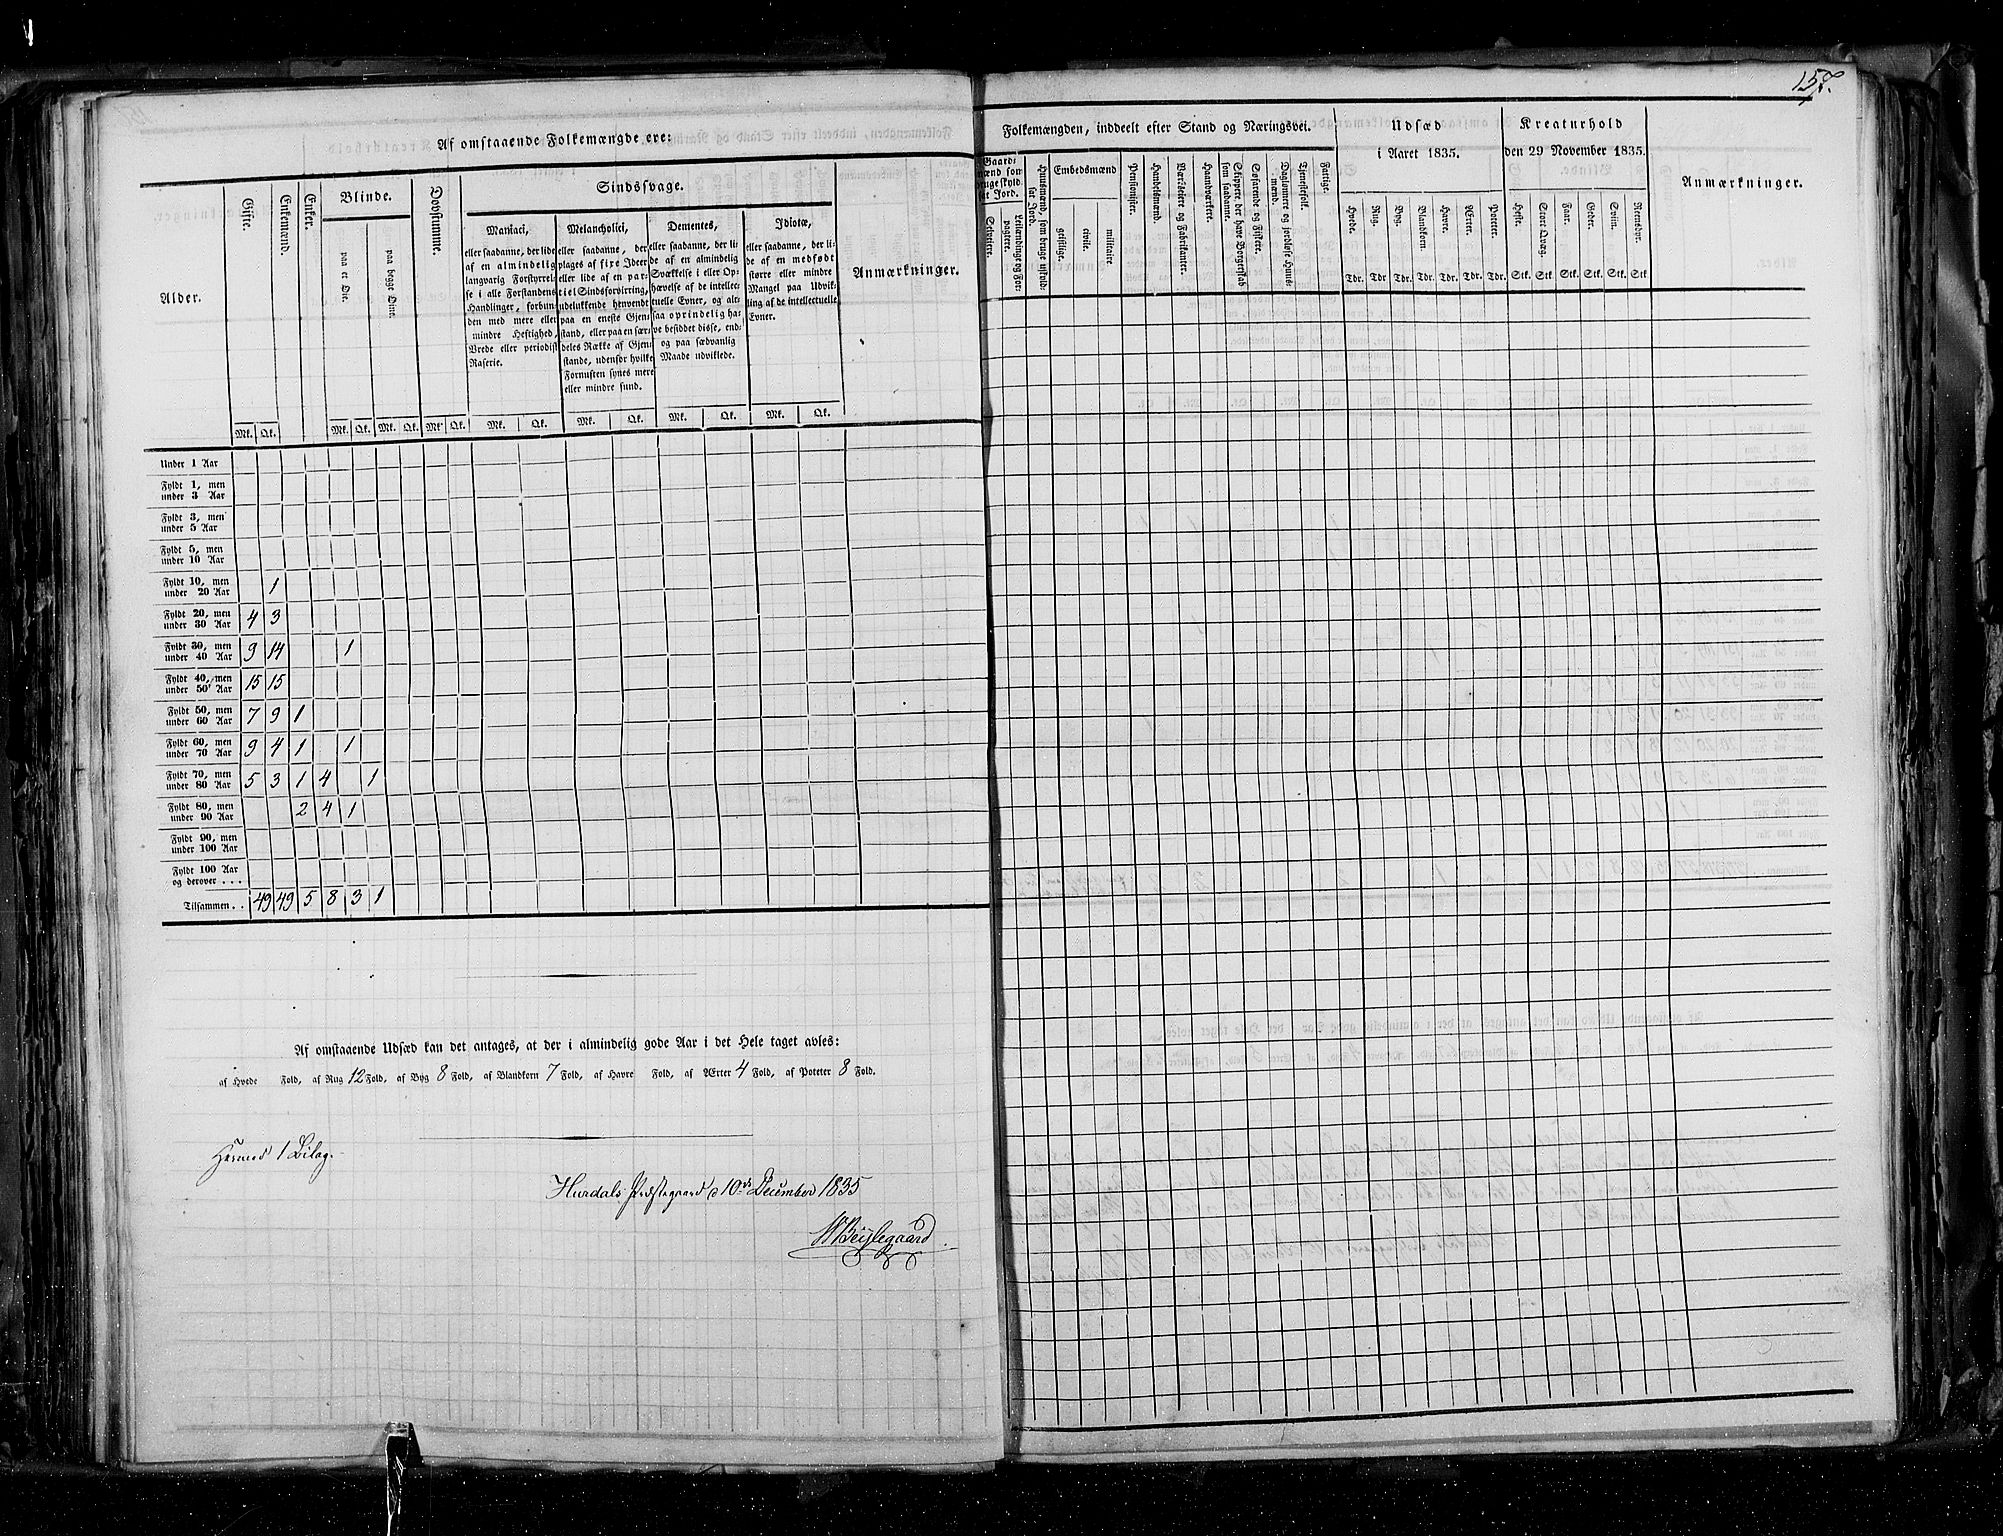 157.
Af omstaaende Folkemængde ere:
Alder.
Gifte.
Enkemænd.
Enker.
Blinde.
paa et Øie.
paa begge Øine.
Døvstumme.
Sindssvage.
Maniaci,
eller saadanne, der lide
af en almindelig
langvarig Forstyrrel-
se i alle Forstandens
Handlinger, forbun-
den med mere eller
mindre Heftighed,
Vrede eller periodisk
Raserie.
Melancholici,
eller saadanne, der
plages af fixe Ideer
eller lide af en par-
tiel Sindsforvirring,
udelukkende henvendt
paa en eneste Gjen-
stand, eller paa en sær-
deles Række af Gjen-
stande, udenfor hvilke
Fornuften synes mere
eller mindre sund.
Dementes,
eller saadanne, der li-
de af en almindelig
Svækkelse i eller Op-
hævelse af de intellec-
tuelle Evner, og alt-
saa oprindelig ha-
ve besiddet disse, end-
og paa sædvanlig
Maade udviklede.
Idiotæ,
eller saadanne, der li-
de af en medfødt
større eller mindre
Mangel paa Udvik-
ling af de intellectuelle
Evner.
Anmærkninger.
Mk. Qk. Mk. Qk. Mk. Qk. Mk. Qk. Mk. Qk. Mk. Qk. Mk. Qk. Mk. Qk.
Under 1 Aar
Fyldt 1, men
under 3 Aar
Fyldt 3, men
under 5 Aar
Fyldt 5, men
under 10 Aar
Fyldt 10, men
under 20 Aar 1
Fyldt 20, men
under 30 Aar 4 3
Fyldt 30, men
under 40 Aar 9 14 1
Fyldt 40, men
under 50 Aar 15 15
Fyldt 50, men
under 60 Aar 7 9 1
Fyldt 60, men
under 70 Aar 9 4 1 1
Fyldt 70, men
under 80 Aar 5 3 1 4 1
Fyldt 80, men
under 90 Aar 2 4 1
Fyldt 90, men
under 100 Aar
Fyldt 100 Aar
og derover . . .
Tilsammen . . 49 49 5 8 3 1
Af omstaaende Udsæd kan det antages, at der i almindelig gode Aar i det Hele taget avles:
af Hvede Fold, af Rug 12 Fold, af Byg 8 Fold, af Blandkorn 7 Fold, af Havre Fold, af Ærter 4 Fold, af Poteter 8 Fold.
Hermed 1 Bilag.
Hurdals Præstegaard d 10de December 1835
Folkemængden, inddeelt efter Stand og Næringsvei.
Gaard-
mænd som
bruge skyld-
sat Jord.
Selveiere.
Leilændinge og For-
pagtere.
Huusmænd, som bruge uskyld-
sat Jord.
Embedsmænd
geistlige.
civile.
militaire.
Pensionister.
Handelsmænd.
Værkseiere og Fabrikanter.
Haandværkere.
Skippere, der have Borgerskab
som saadanne.
Søfarende og Fiskere.
Daglønnere og jordløse Huus-
mænd.
Tjenestefolk.
Fattige.
Udsæd
i Aaret 1835.
Hvede. Rug. Byg. Blandkorn. Havre. Ærter. Poteter.
Tdr. Tdr. Tdr. Tdr. Tdr. Tdr. Tdr.
Kreaturhold
den 29 November 1835.
Heste. Stort Qvæg. Faar. Geder. Sviin. Reensdyr.
Stk. Stk. Stk. Stk. Stk. Stk.
Anmærkninger.